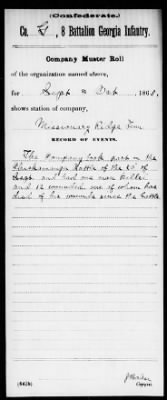 (Confederate.)
Co. , 8 Battalion Georgia Infantry.
Company Muster Roll
of the organization named above,
for Sept & Oct , 1863.
shows station of company,
Missionary Ridge Tenn
RECORD OF EVENTS.
The Company took part in the
Chickamauga battle of the 20" of
Sept and had one man killed
and 12 wounded one of whom has
died of his wounds since the battle
(642b)
Copyist.